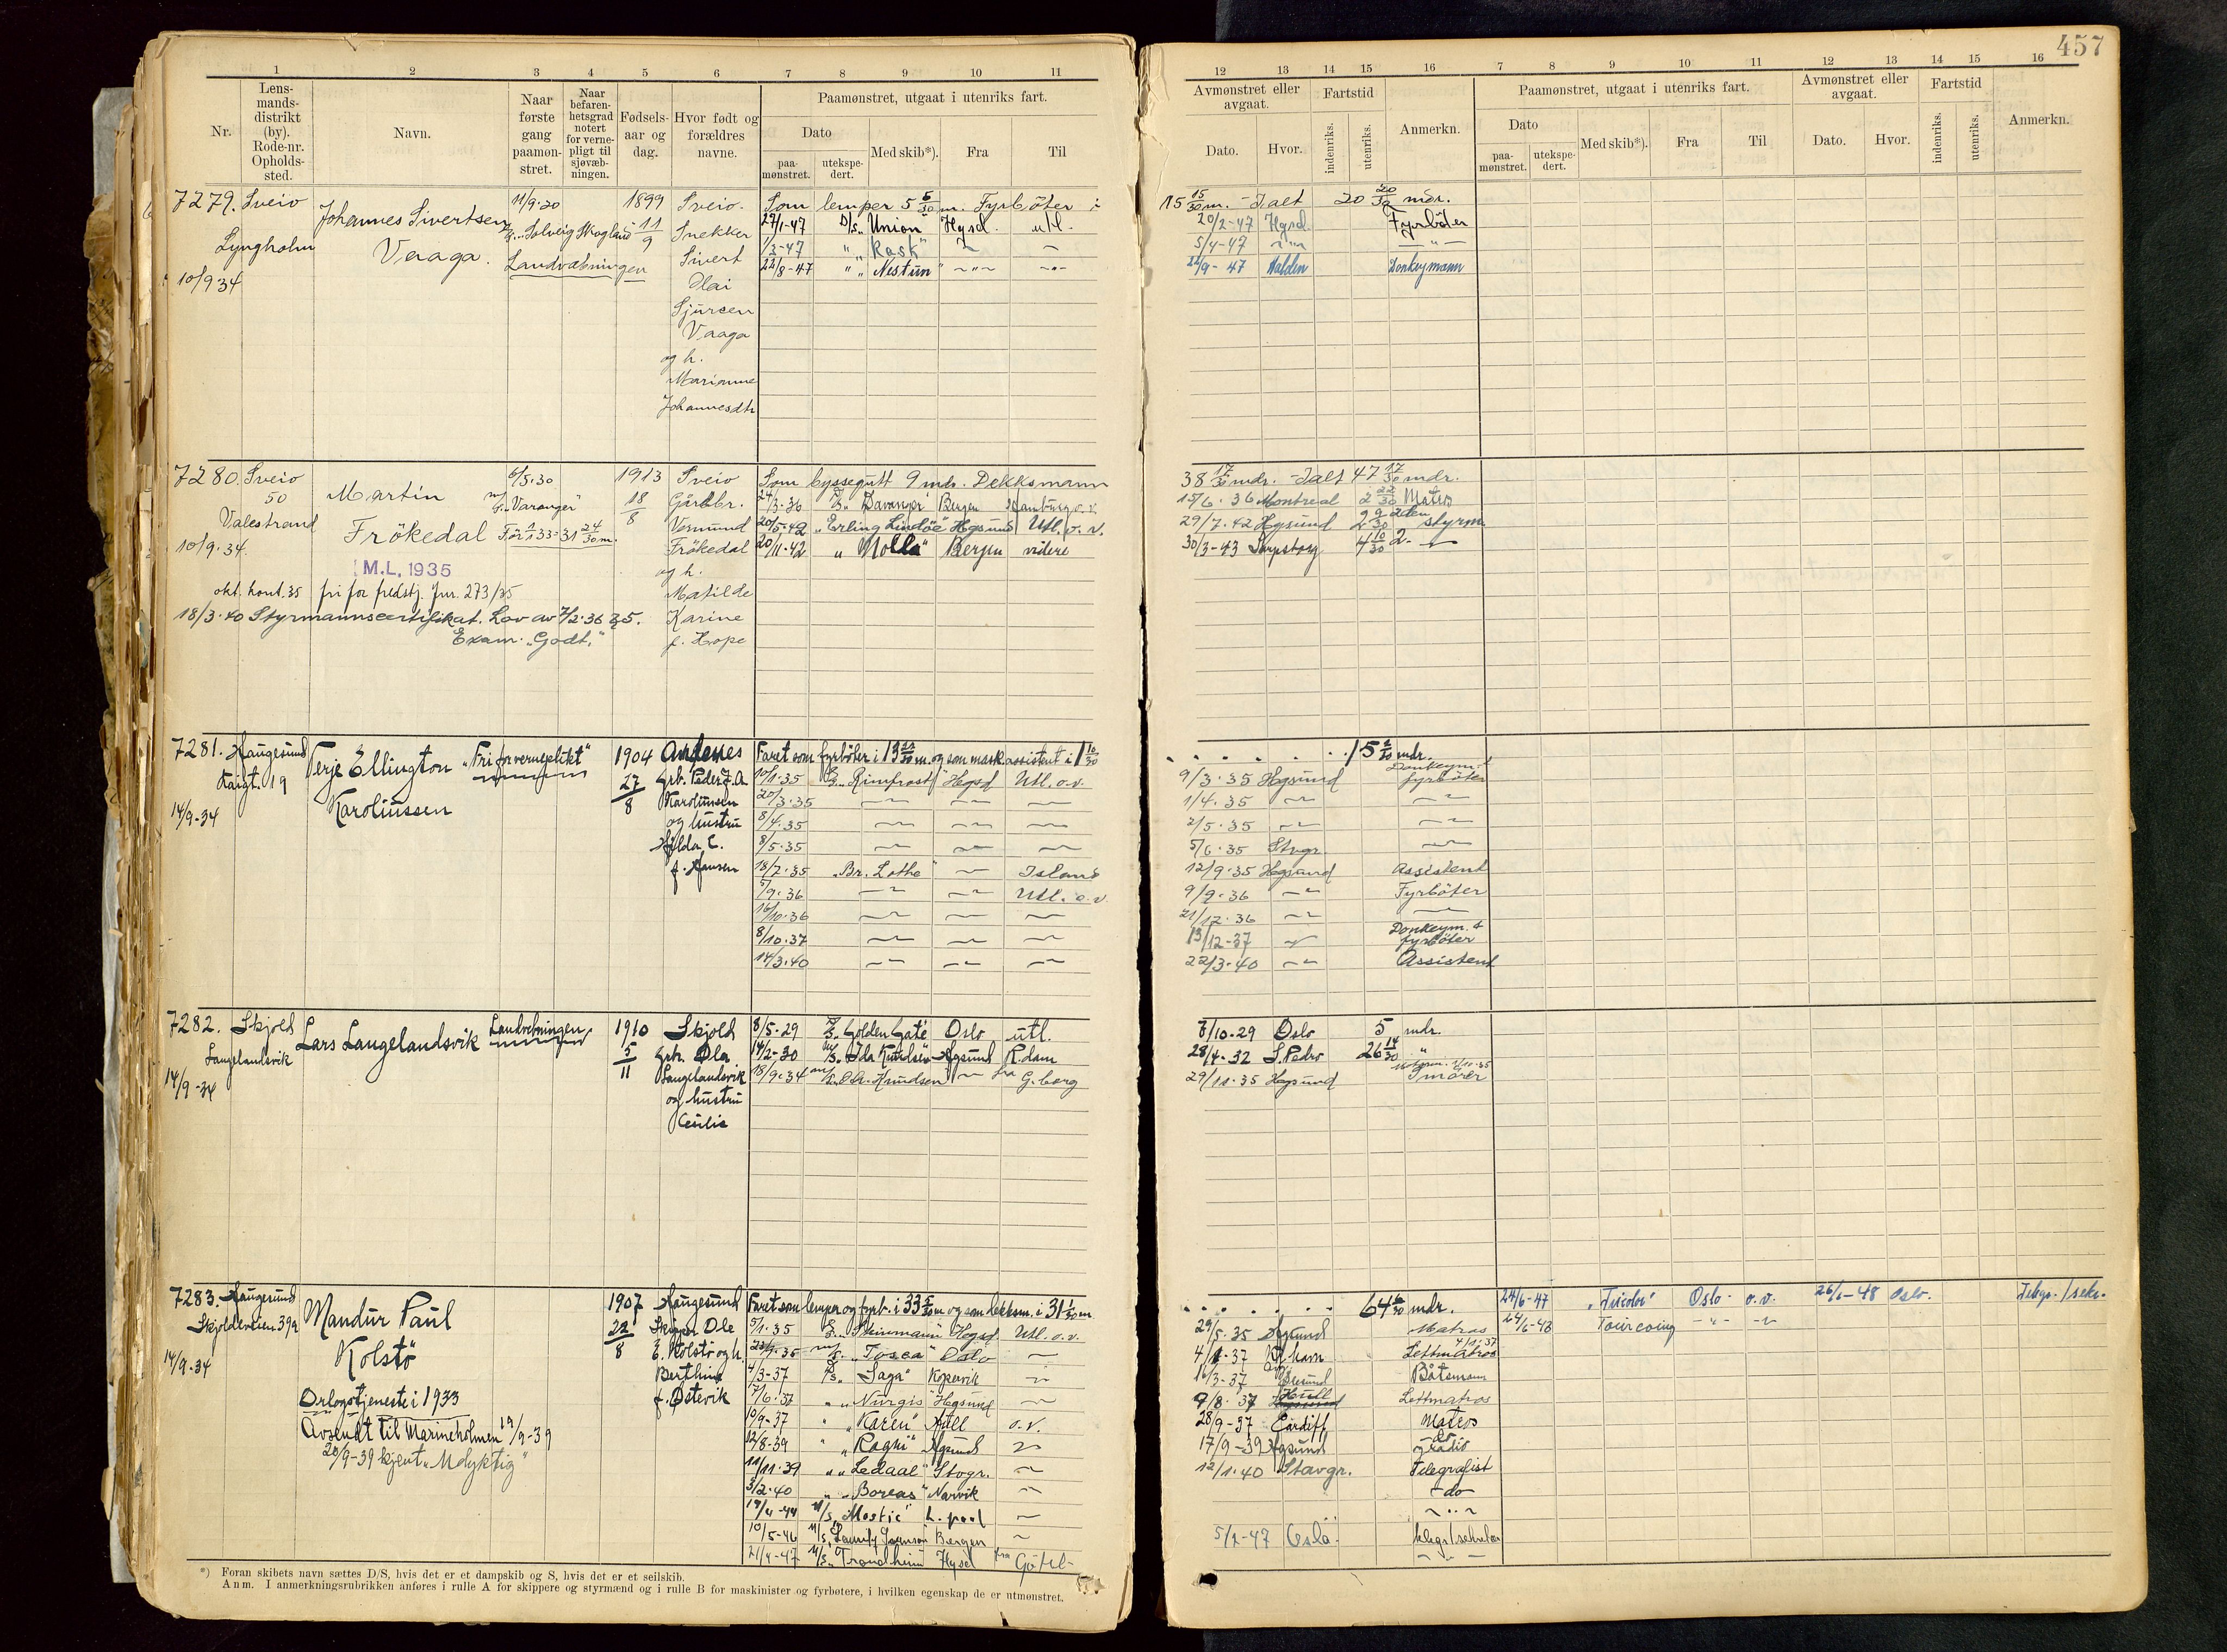 457
1 2 3 4 5 6 7 8 9 10 11
12 13 14 15 16 7 8 9 10 11 12 13 14 15 16
Nr.
Lens-
mands-
distrikt
(by).
Rode-nr.
Opholds-
sted.
Navn.
Naar
første
gang
paamøn-
stret.
Naar
befaren-
hetsgrad
notert
for verne-
pligt til
sjøvæb-
ningen.
Fødsels-
aar og
dag.
Hvor født og
forældres
navne.
Paamønstret, utgaat i utenriks fart.
Dato
paa-
mønstret.
utekspe-
dert.
Med skib*).
Fra
Til
Avmønstret eller
avgaat.
Dato.
Hvor.
Fartstid
indenriks.
utenriks.
Anmerkn.
Paamønstret, utgaat i utenriks fart.
Dato
paa-
mønstret.
utekspe-
dert.
Med skib*).
Fra
Til
Avmønstret eller
avgaat.
Dato.
Hvor.
Fartstid
indenriks.
utenriks.
Anmerkn.
7279. Sveio
Lyngholm
10/9.34
Johannes Sivertsen
Vaaga.
11/9.20
Solveig Skogland
Landvæbningen
1899
11/9
Sveio.
Snekker
Sivert
Olai
Sjursen
Vaaga
og h.
Marianne
Johannesdtr
Som lemper 5 6/30 m. Fyrbøter i
27/1-47 D/s „Union Hgsd. utl.
1/3-47 „ Rask" — —
22/8-47 „ „ Nestun" —„— —„—
15 15/30 m. - Ialt 20 20/30 mdr.
20/2-47 Hgsd. Fyrbøter
5/4-47 —„— —„—
22/9-47 Halden Donkeymann
7280. Sveio
50
Valestrand
10/9.34.
Martin
Frökedal
6/5.30
m/s. „Varanger"
Før 1/1 33 = 31 24/30 m.
M.L. 1935
okt. kont. 35 fri for fredstj. Jnr. 273/35
18/3.40 Styrmannscertifikat. Lov av 7/2.36 § 5.
Exam: „Godt."
1913
18/8
Sveio
Gårdbr.
Vermund
Frökedal
og h.
Matilde
Karine
f. Hope
Som byssegutt 9 mdr. Dekksmann
24/3.36 „Davanger" Bergen Hamburg o.v.
20/5-42 „Erling Lindöe" Hgsund Utl. o. v.
20/11-42 „Molla" Bergen videre
38 17/30 mdr. - Ialt 47 17/30 mdr.
15/6.36 Montreal 2 22/30 Matros
29/7.42 Hgsund 2 9/30 2den styrm.
30/3-43 Sarpsborg 4 10/30 2. —
7281. Haugesund
Kaigt. 19
14/9-34
Terje Ellington
Karoliussen
„Fri for verneplikt"
1904
27/8
Andenes
Grb. Peder J. A.
Karoliussen
og hustru
Hilda C.
f. Hansen
Faret som fyrbøter i 13 m. og som mask.assistent i 1 10/30
10/1.35 „Rimfrost" Hgsd Utl. o.v.
20/3.35 —„— —„— —
8/4.35 —„— —„— —
8/5.35 —„— —„— —
18/7.35 „Br. Lothe" — Island
5/9.36 —„— —„— Utl. o.v.
16/10.36 — — —
8/10.37 — — —
14/3.40 —„— —„— —
15 2/30 mdr.
9/3.35 Hgsund Donkeym. & fyrbøter
1/4.35 —„— —„—
2/5.35 —„— —„—
5/6.35 Stvgr. —
12/9.35 Hgsund Assistent
9/9.36 —„— Fyrbøter
21/12.36 —„— —
13/12-37 — Donkeym. & fyrbøter
22/3.40 —„— Assistent
7282. Skjold
Langelandsvik
14/9-34
Lars Langelandsvik
Landvebningen
1910
5/11
Skjold
Grb. Ola
Langelandsvik
og hustru
Cecilie
8/5-29 „Golden Gate Oslo utl.
14/2-30 M/s. Ida Knudsen Hgsund R.dam
18/9.34 m/s. O.A. Knudsen — fra G.borg
8/10-29 Oslo 5 mdr.
28/4-32 S. Pedro 26 14/30 „
29/11.35 Hgsund Smører
7283. Haugesund
Skjoldeveien 39a
14/9-34
Mandur Paul
Kolstø
Orlogstjeneste i 1933
Avsendt til Marineholmen 19/9-39
20/9-39 kjent „Udyktig"
1907
22/8
Haugesund
Skipper Ole
E. Kolstø og h.
Berthine
f. Østevik
Faret som lemper og fyrb. i 33 5/30 m og som dekksm. i 31 1/30 m
5/1.35 „Steinmann" Hgsd. Utl. o.v.
23/9.35 m/s. „Tosca" Oslo —
4/3-37 D/s. „Saga" Kopervik —
7/6.37 „ „Nurgis" Hgsund —
10/9-37 „ „Karen" Hull o.v.
12/8-39 „ „Ragni" Hgsund —
11/11.39 „ „Ledaal" Stvgr. —
3/2.40 „ „Boreas" Narvik —
19/4-44 M/s. „Mostic" L. pool —
10/5-46 M/s. Bergen —
21/4-47 M/s. „Trondheim Hgsd fra Götel-
64 6/30 mdr.
29/5.35 Hgsund Matros
4/1-37 Kbhavn Lettmatros
16/3-37 Båtsmann
9/8.37 Hull Lettmatros
28/9-37 Cardiff Matros
17/9-39 Hgsund do radio
12/1.40 Stavgr. Telegrafist
—do—
—„—
5/2-47 Oslo. telegr./sekretær
24/6-47 „Tricolor" Oslo o.v. 26/1-48 Oslo. Telegr./sekr.
24/6-48 Tourcoing —„— —„—
*) Foran skibets navn sættes D/S, hvis det er et dampskib og S, hvis det er et seilskib.
Anm. I anmerkningsrubrikken anføres i rulle A for skippere og styrmænd og i rulle B for maskinister og fyrbøtere, i hvilken egenskap de er utmønstret.